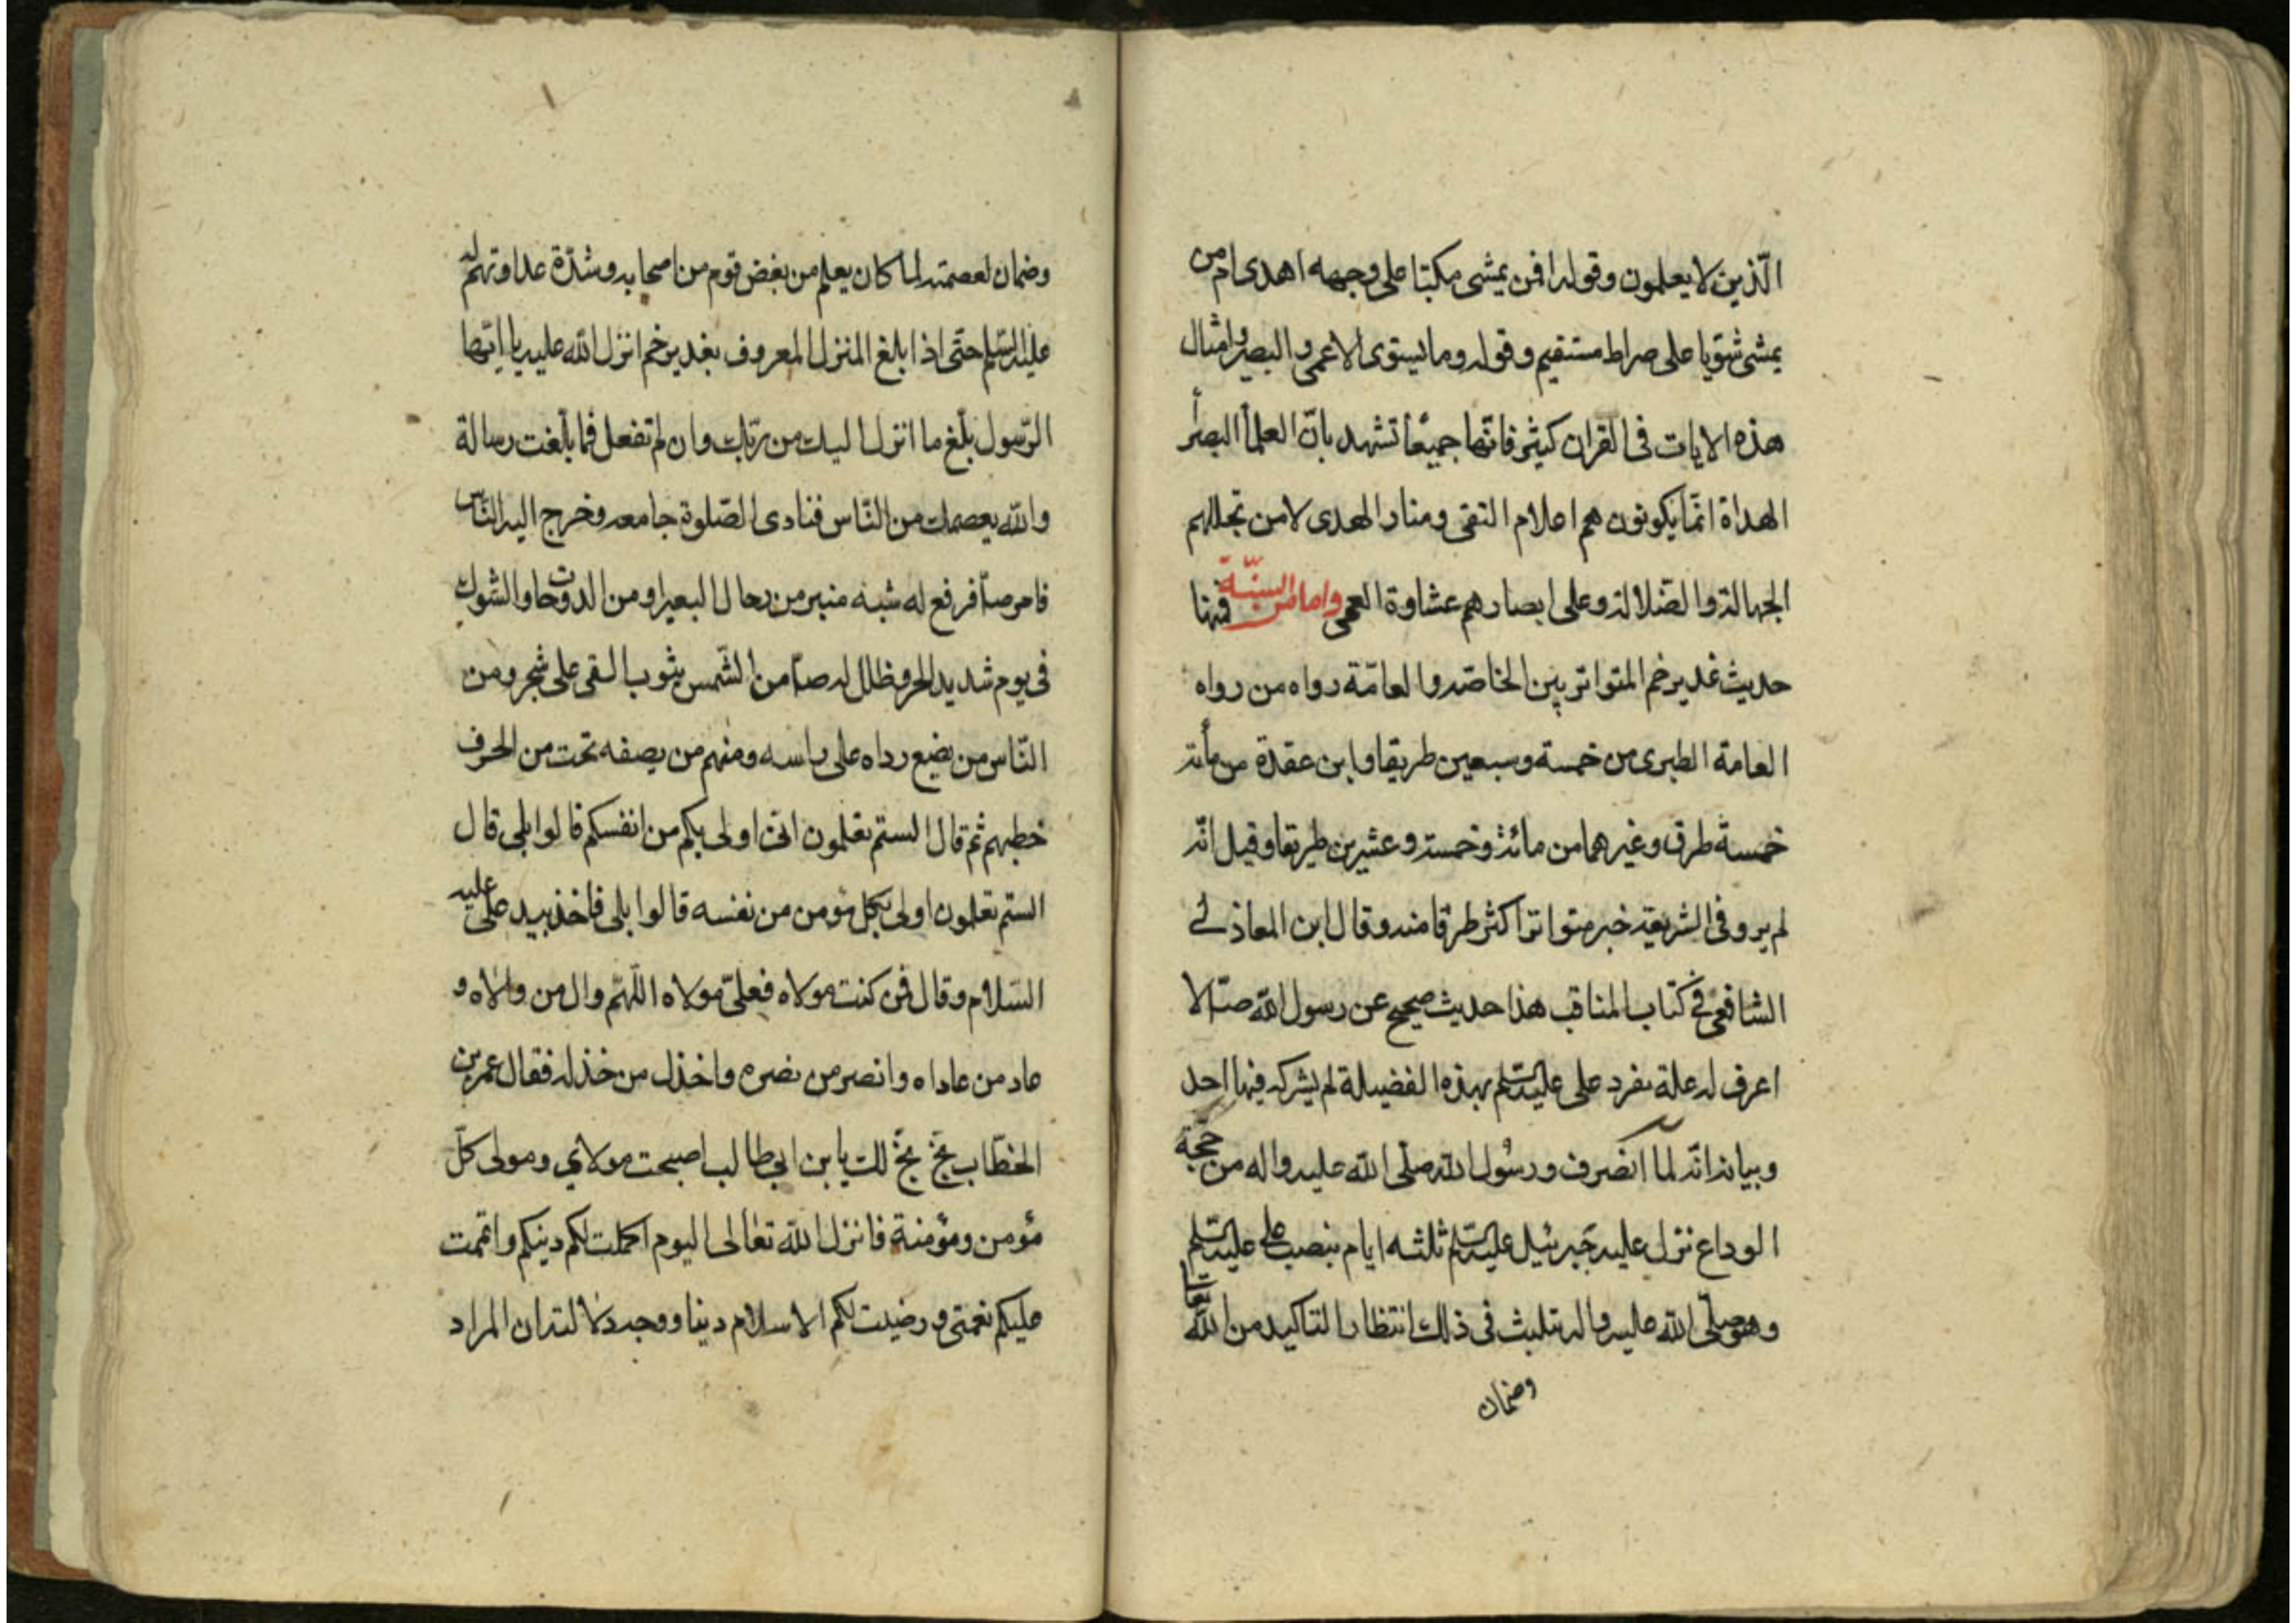 الّذين لا يعلمون وقوله افمن يمشى مكبّا على وجهه اهدى ام من
يمشى سّويا على صراط مستقيم وقوله وما يستوى الاعمى والبصير وامثال
هذه الايات فى القران كثيرة فانّها جميعًا تشهد بانّ العلمآ البصرآ
الهداة انّما يكونون هم اعلام التقى ومنار الهدى لا من تجللهم
الجهالة والضلالة وعلى ابصارهم عشاوة العمى واما من السنّة فمنها
حديث غدير خم المتواتر بين الخاصّه والعامّة رواه من رواه
العامة الطبرى من خمسة وسبعين طريقا وابن عقدة من مأئة
خمسة طرق وغيرهما من مائة وخمسة وعشرين طريقا وقيل انّه
لم يرو فى الشريعة خبر متواتر اكثر طرقا منه وقال ابن المعاذلے
الشافعى فے كتاب المناقب هذا حديث صحيح عن رسول الله صۤ لا
اعرف له علة تفرد على عليه السّلم بهذه الفضيلة لم يشركه فيها احد
وبيانه انّه لمآ انصرف ورسُول الله صلّى الله عليه واله من حجّة
الوداع نزل عليه جَبرئيل عليه السّلم ثلثه ايام بنصب على عليه السّلم
وهو صلّى الله عليه واله يتلبث فى ذلك انتظارا لتاكيد من الله تعا
وضمان
وضمان لعصمته لما كان يعلم من بغض قوم من اصحابه وشدّة عداوتهم له
عليه السّلم حتّى اذا بلغ المنزل المعروف بغدير خم انزل الله عليه يا ايّها
الرّسول بلّغ ما انزل اليك من ربّك وان لم تفعل فما بلّغت رسالة
والله يعصمك من النّاس فنادى الصّلوة جامعه وخرج اليه النّاس
فامر صۤ فرفع له شبه منبر من رحال البعير او من الدوحات والشوك
فى يوم شديد الحر وظلل له صۤ من الشّمس بثوب القى على شجر ومن
النّاس من يضع رداه على راسه ومنهم من يصفه تحت من الحر ف
خطبهم ثم قال الستم تعلمون انى اولى بكم من انفسكم قالوا بلى قال
الستم تعلمون اولى بكل مؤمن من نفسه قالوا بلى فاخذ بيد على عليه
السّلام وقال فمن كنت مولاه فعلىّ مولاه اللّهمّ وال من والاه و
عاد من عاداه وانصر من نصره واخذل من خذله فقال عمر بن
الخطّاب بخّ بخّ لك يا بن ابى طالب اصبحت مولاي ومولى كلّ
مؤمن ومؤمنة فانزل الله تعالى اليوم اكملت لكم دينكم واتممت
عليكم نعمتى ورضيت لكم الاسلام دينا ووجه دلالته ان المراد